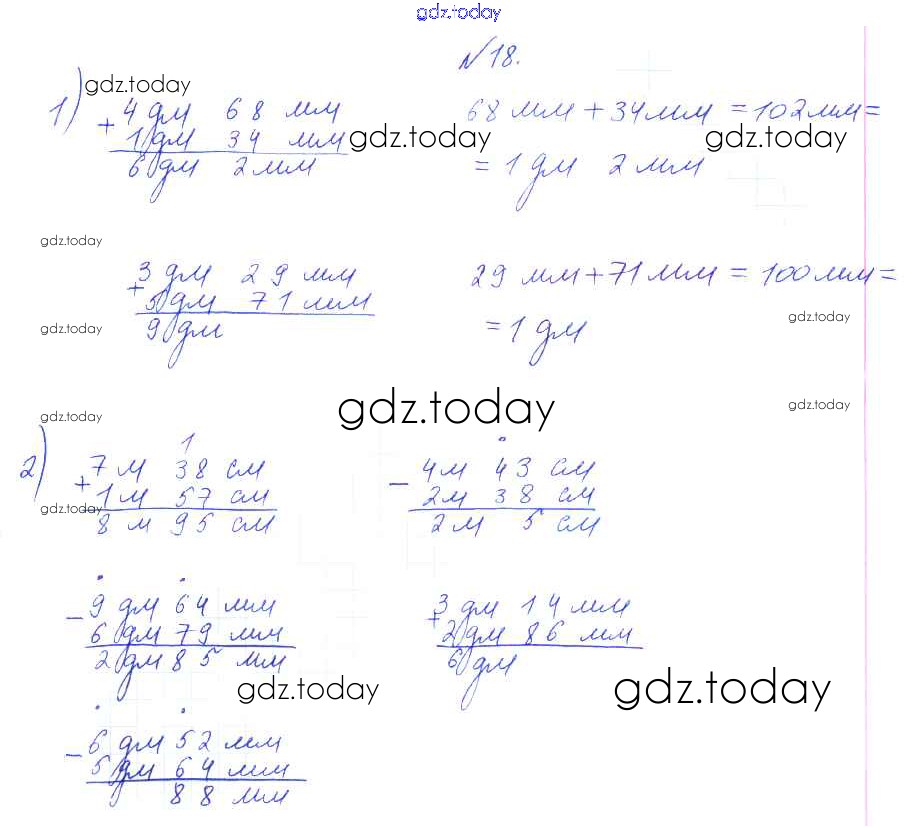 gdz.today
№18.
gdz.today
1) + 4 дм 68 мм
1 дм 34 мм
6 дм 2 мм
68 мм + 34 мм = 102 мм =
= 1 дм 2 мм
gdz.today
gdz.today
gdz.today
+ 3 дм 29 мм
5 дм 71 мм
9 дм
29 мм + 71 мм = 100 мм =
= 1 дм
gdz.today
gdz.today
gdz.today
gdz.today
gdz.today
1
2) + 7 м 38 см
1 м 57 см
8 м 95 см
gdz.today
− 4м 43 см
2м 38 см
2м 5 см
− 9 дм 64 мм
6 дм 79 мм
2 дм 85 мм
+ 3 дм 14 мм
2 дм 86 мм
6 дм
gdz.today
gdz.today
− 6 дм 52 мм
5 дм 64 мм
88 мм